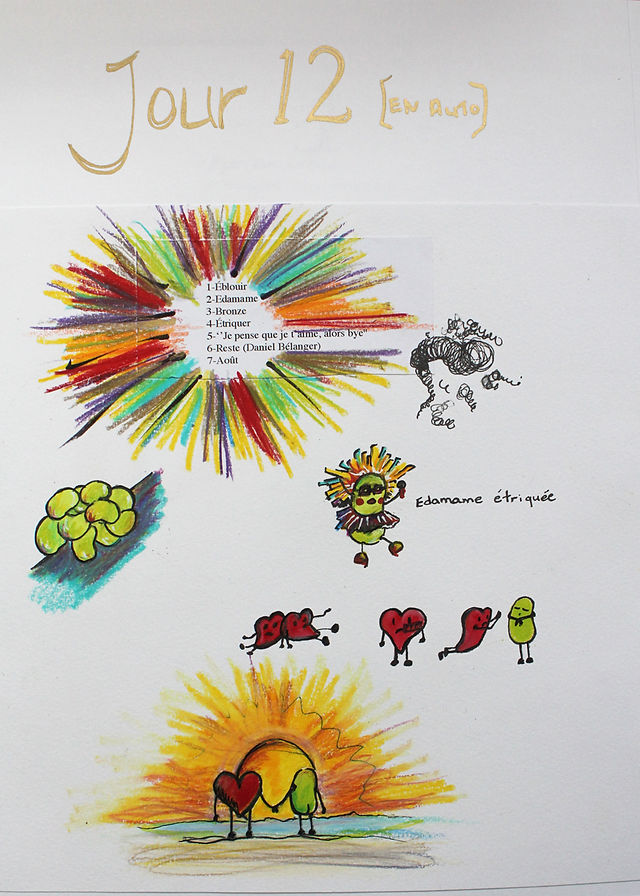 Jour 12 [EN AUTO]
1-Éblouir
2-Edamame
3-Bronze
4-Étriquer
5-''Je pense que je t'aime, alors bye"
6-Reste (Daniel Bélanger)
7-Août
Edamame étriquée